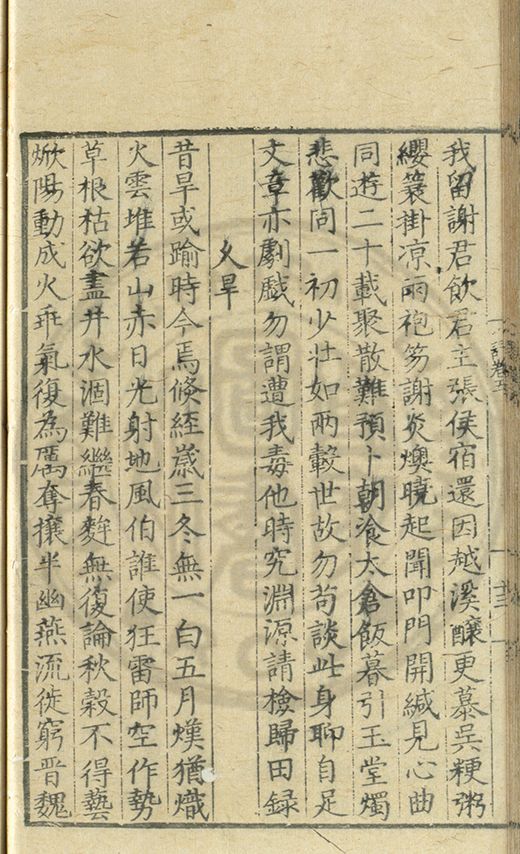 我留謝君飲君主張侯宿還因越溪醸更慕吳粳粥
纓簑掛凉雨袍笏謝炎燠曉起聞叩門開緘見心曲
同遊二十載聚散難預卜朝飡太倉飯暮引玉堂燭
悲歡同一初少壯如兩轂世故勿苟談此身聊自足
文章亦劇戲勿謂遭我毒他時究淵源請檢歸田録
久旱
昔旱或踰時今焉倐経嵗三冬無一白五月熯猶熾
火雲堆若山赤日光射地風伯誰使狂雷師空作勢
草根枯欲盡井水涸難繼春麰無復論秋榖不得藝
焮陽動成火乖氣復為厲奪攘半幽燕流徙窮晉魏
卷五